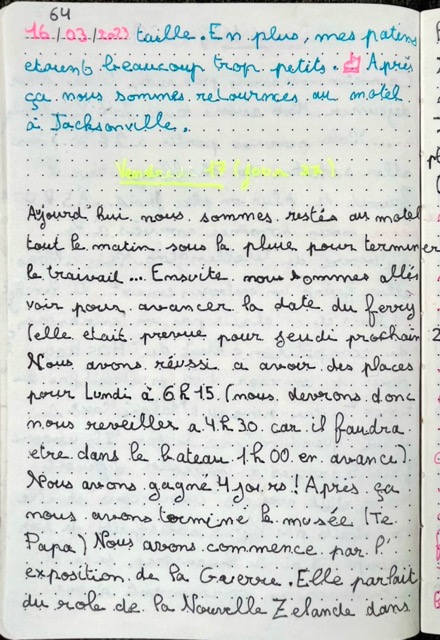 64
16/03/2023 taille. En plus, mes patins
etaient beaucoup trop petits. Après
ça nous sommes retournés au motel
à Jacksonville.
Vendredi 17 (jour
Ajourd'hui nous sommes restés au motel
tout le matin sous la pluie pour terminer
le traivail... Ensuite nous sommes allés
voir pour avancer la date du ferry
(elle etait prevue pour jeudi prochain
Nous avons réussi a avoir des places
pour Lundi à 6h15. (nous devrons donc
nous reveiller a 4h30 car il faudra
etre dans le bateau 1h00 en avance).
Nous avons gagné 4 jours! Après ça
nous avons terminé le musée (Te
Papa) Nous avons commence par l'
exposition de la Guerre. Elle parlait
du role de la Nouvelle Zelande dans